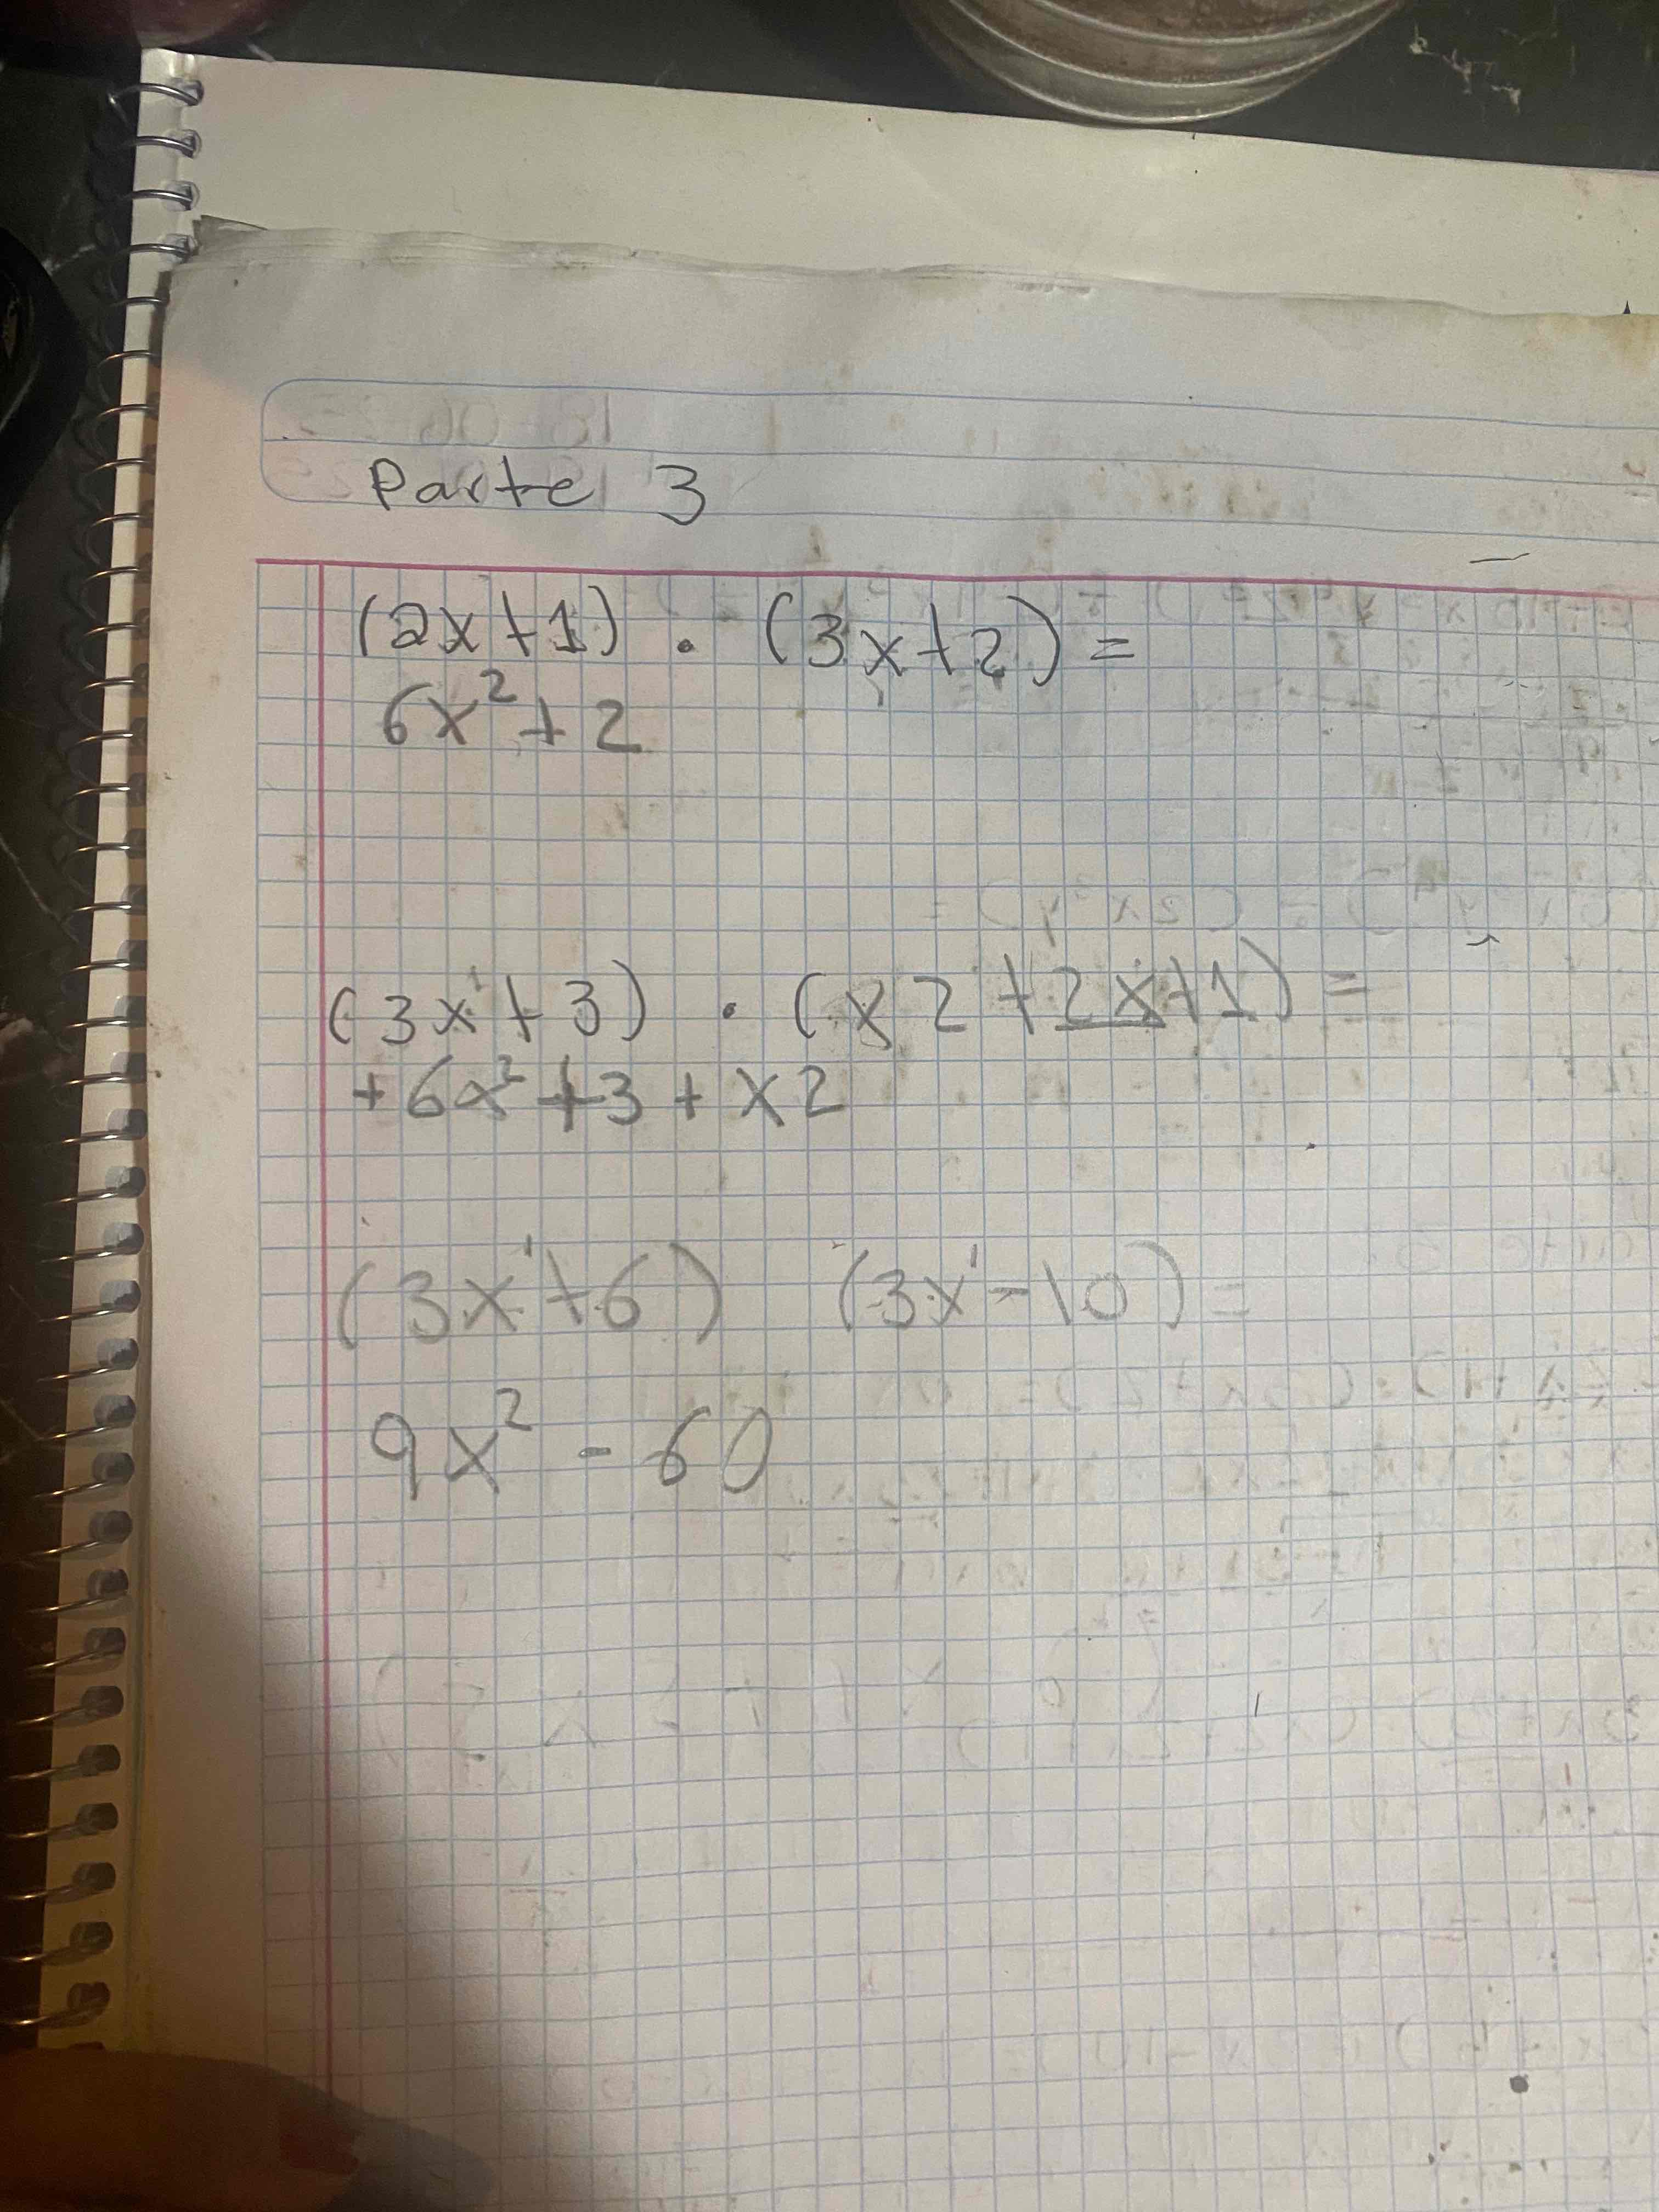 Parte 3
(2x+1) · (3x+2) =
6x² + 2
(3x¹+3) · (x2+2x+1) =
+6x²+3+x2
(3x¹+6) (3x¹-10) =
9x² - 60